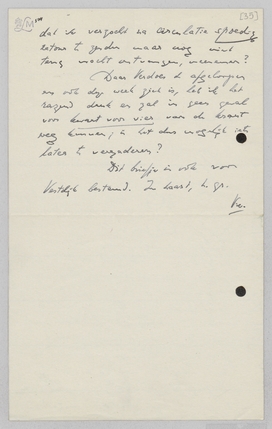 [35]
dat ik verzocht na circulatie spoedig
retour te zenden maar nog niet
terug mocht ontvangen, meenemen?
Daar Verdoes d. afgelopen
en ook deze week ziek is, heb ik het
razend druk en zal in geen geval
voor kwart voor vier van de krant
weg kunnen; is het dus mogelijk iets
later te vergaderen?
Dit briefje is ook voor
Vestdijk bestemd. In haast, h. gr.